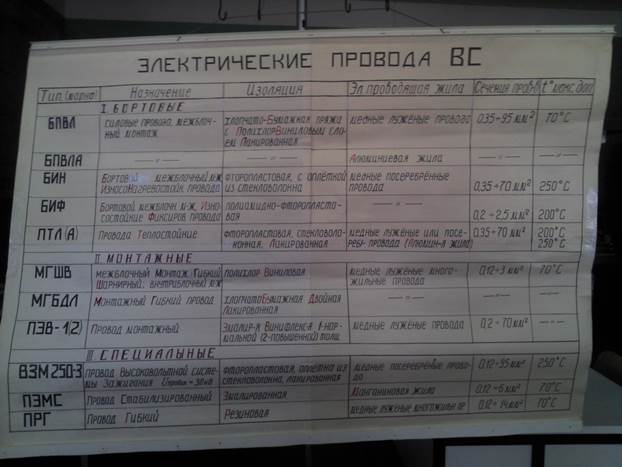 ЭЛЕКТРИЧЕСКИЕ ПРОВОДА ВС
Тип,(марка) Назначение Изоляция Эл.проводящая жила Сечения пров-в t° макс.доп
I. БОРТОВЫЕ
БПВЛ силовые провода, межблоч- хлопчато-Бумажная пряжа медные луженые провода 0,35÷95 мм² 70°С
ный монтаж с ПолихлорВиниловым сло-
ем Лакированная
БПВЛА —"— —"— Алюминиевая жила —"— —"—
БИН Бортовой межблочный м-ж, фторопластовая, с оплёткой медные посеребрённые
ИзносоНагревостойк. провода из стекловолокна провода 0,35÷70 мм² 250°С
БИФ Бортовой межблочн. м-ж, Изно- полиамидно-фторопласто- —"—
состойкие Фиксиров. провода вая 0,2 ÷ 2,5 мм² 200°С
ПТЛ(А) Провода Теплостойкие фторопластовая, стекловоло- медные луженые или посе- 0,35÷70 мм² 200°С
конная, Лакированная ребр. провода (Алюмин-я жила) 250°С
II. МОНТАЖНЫЕ
МГШВ межблочный Монтаж Гибкий полихлор Виниловая медные луженые много- 0,12÷3 мм² 70°С
Шарнирный; внутриблочный м-ж жильные провода
МГБДЛ Монтажный Гибкий провод хлопчатоБумажная Двойная —"— —"— —"—
Лакированная
ПЭВ-1(2) Провод монтажный Эмалир-я Винифлекс 1-нор- медные луженые провода 0,2 ÷ 70 мм² —"—
мальной (2-повышенной) толщ.
III. СПЕЦИАЛЬНЫЕ
ВЗМ250-3 провод Высоковольтной систе- Фторопластовая, оплётка из медные посеребрёные прово- 0,12÷35 мм² 250°С
мы Зажигания стекловолокна, лакированная да
ПЭМС Провод Стабилизированный Эмалированная Манганиновая жила 0,12 ÷ 6 мм² 70°С
ПРГ Провод Гибкий Резиновая медные луженые многожильн пр 0,12 ÷ 14 мм² 70°С